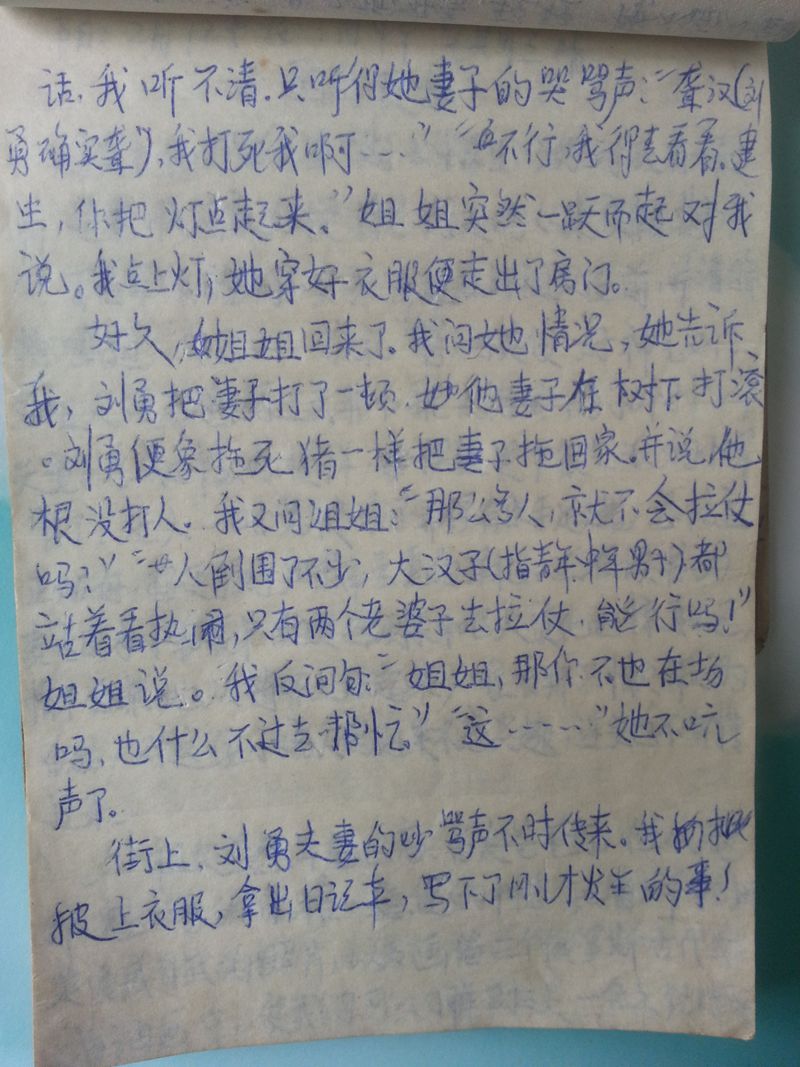 话,我听不清.只听得她妻子的哭骂声:“聋汉(刘
勇确实聋),我打死我啊……”“不行,我得去看看,建
生,你把灯点起来。”姐姐突然一跃而起对我
说。我点上灯,她穿好衣服便走出了房门。
好久,姐姐回来了。我问她情况,她告诉
我,刘勇把妻子打了一顿.他妻子在树下打滚
。刘勇便象拖死猪一样把妻子拖回家.并说,他
根没打人。我又问姐姐:“那么多人,就不会拉仗
吗?”“人倒围了不少,大汉子(指青年、中年男子)都
站着看热闹,只有两个老婆子去拉仗.能行吗!”
姐姐说。我反问句:“姐姐,那你不也在场
吗,也什么不过去帮忙”“这……”她不吭
声了。
街上.刘勇夫妻的吵骂声不时传来。我
披上衣服,拿出日记本,写下了刚才发生的事!